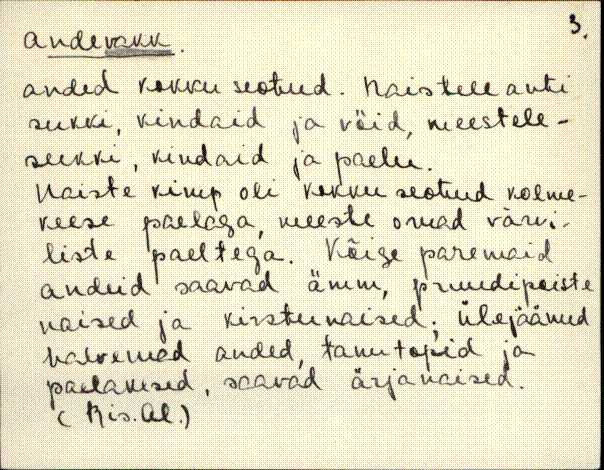 3.
andevakk.
anded kokku seotud. Naistele anti
sukki, kindaid ja vöid, meestele-
sukki, kindaid ja paelu.
Naiste kimp oli kokku seotud kolme-
keese paelaga, meeste omad värvi-
liste paeltega. Kõige paremaid
andeid saavad ämm, pruudipoiste
naised ja kirstunaised; ülejäänud
halvemad anded, tanutopid ja
paelakesed, saavad ärjanaised.
(Ris. Al.)